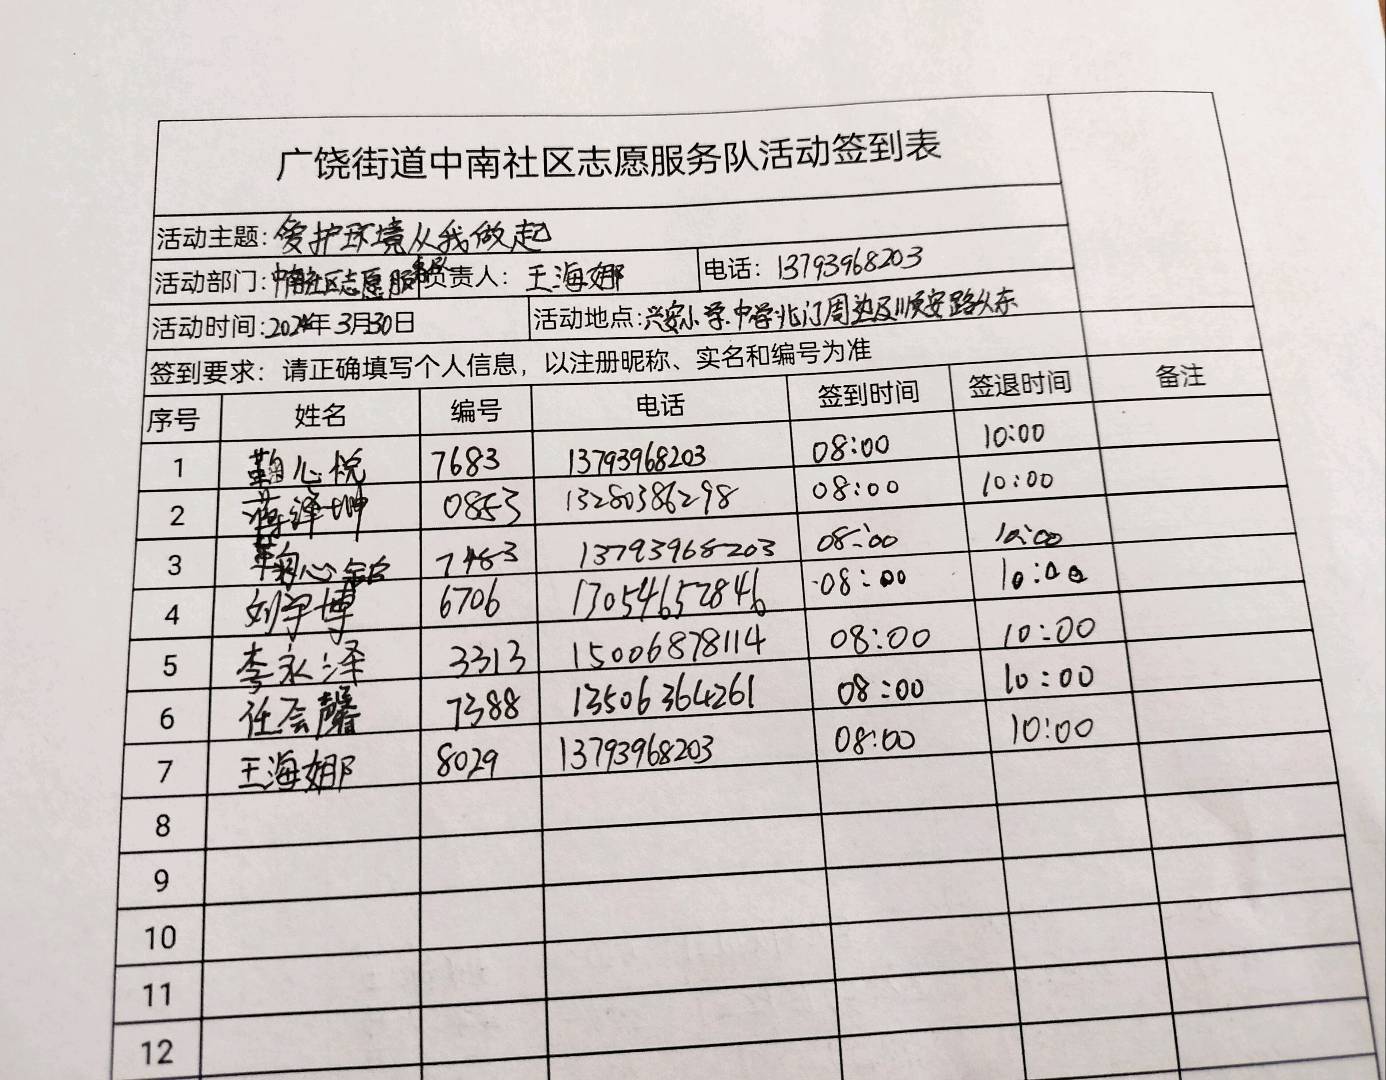 广饶街道中南社区志愿服务队活动签到表
活动主题: 爱护环境从我做起
活动部门: 中南社区志愿服务队 负责人: 王海娜 电话: 13793968203
活动时间: 2024年3月30日 活动地点: 兴安小学.中学北门周边及顺安路以东
签到要求: 请正确填写个人信息，以注册昵称、实名和编号为准
序号 姓名 编号 电话 签到时间 签退时间 备注
1 鞠心悦 7683 13793968203 08:00 10:00
2 蒋泽坤 0853 13280386298 08:00 10:00
3 鞠心 13793968203 08:00 10:00
4 刘宇博 6706 13054652846 08:00 10:00
5 李永泽 3313 15006878114 08:00 10:00
6 任会馨 7388 13506364261 08:00 10:00
7 王海娜 8029 13793968203 08:00 10:00
8
9
10
11
12